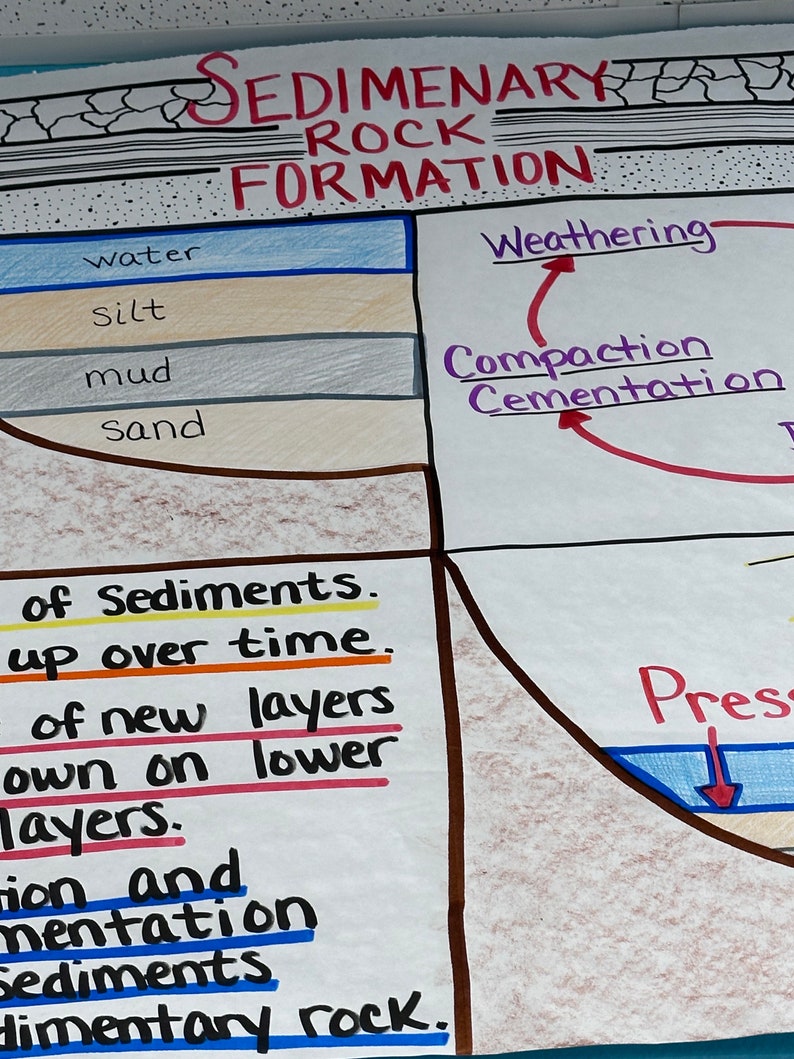 SEDIMENARY
ROCK
FORMATION
water
silt
mud
sand
Weathering
Compaction
Cementation
of sediments.
up over time.
of new layers
own on lower
layers.
ion and
mentation
sediments
dimentary rock.
Press